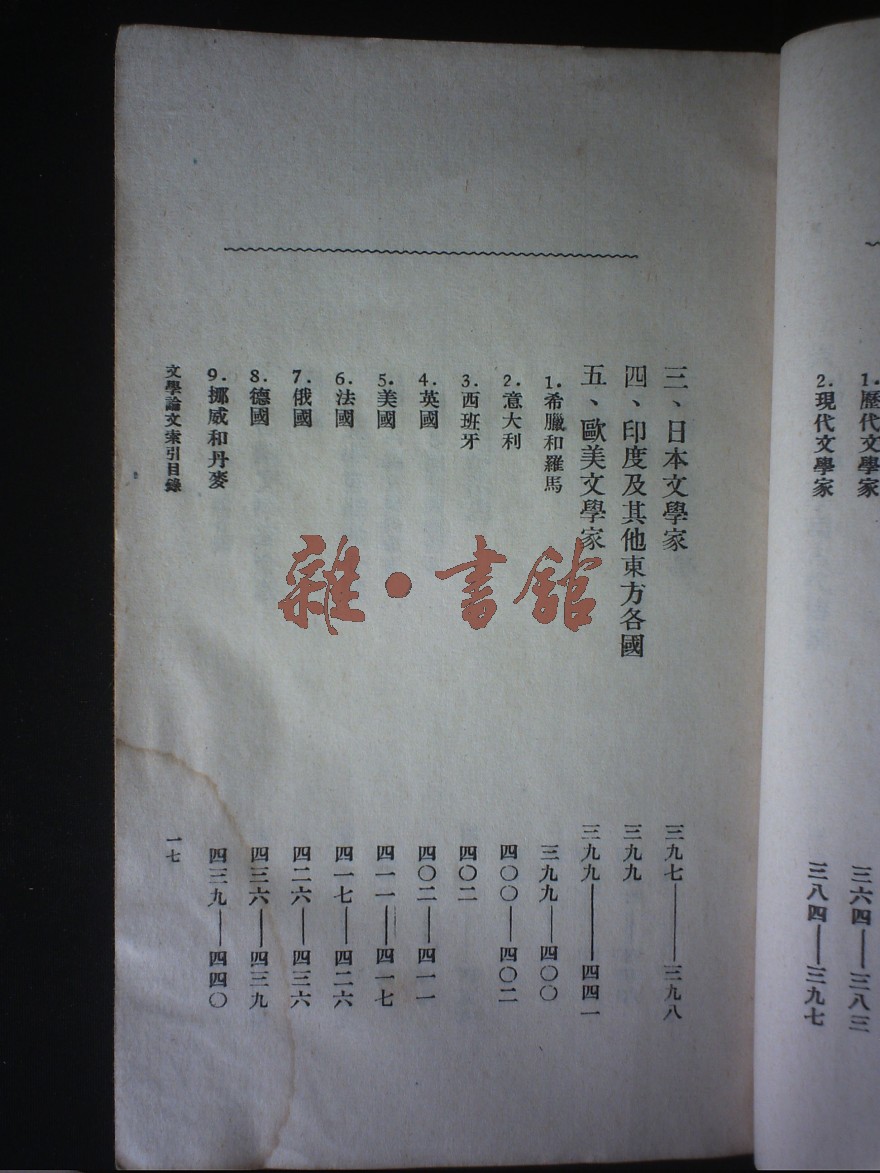 1.歷代文學家 三六四——三八三
2.現代文學家 三八四——三九七
三、日本文學家 三九七——三九八
四、印度及其他東方各國 三九九
五、歐美文學家 三九九——四四一
1.希臘和羅馬 三九九——四〇〇
2.意大利 四〇〇——四〇二
3.西班牙 四〇二
4.英國 四〇二——四一一
5.美國 四一一——四一七
6.法國 四一七——四二六
7.俄國 四二六——四三六
8.德國 四三六——四三九
9.挪威和丹麥 四三九——四四〇
文學論文索引目錄 一七
雜·書館